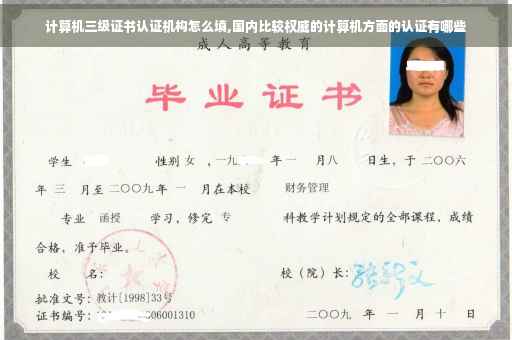 计算机三级证书认证机构怎么填,国内比较权威的计算机方面的认证有哪些
成人高等教育
毕业证书
学生 性别 女 ,一九 年一 月八 日生，于二〇〇六
年 三 月至二〇〇九年 一 月在本校 财务管理
专业 函授 学习，修完 专 科教学计划规定的全部课程，成绩
合格，准予毕业。
校 名： 校（院）长：
批准文号：教计[1998]33号
证书编号： 06001310 二〇〇九 年 一 月 十 日